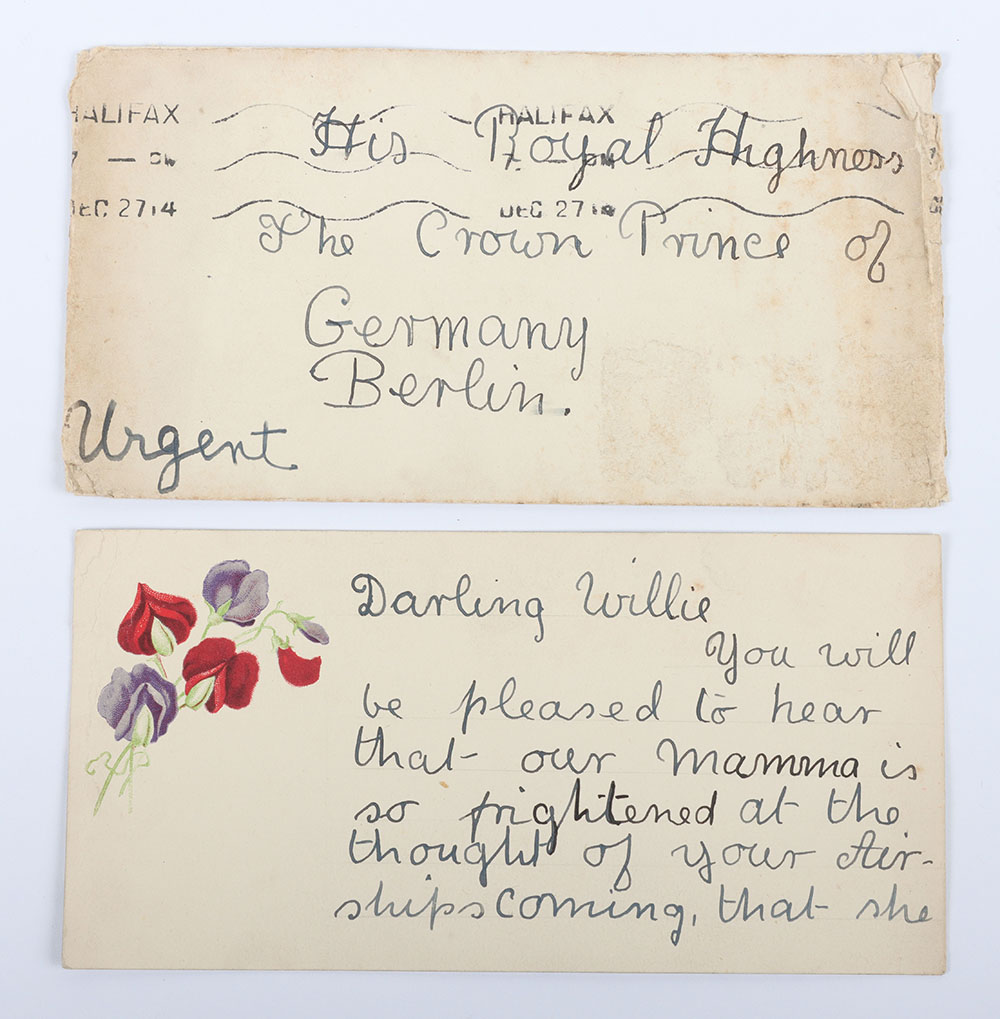 HALIFAX HALIFAX
7 — PM 7 — PM
DEC 27 14 DEC 27 14
His Royal Highness
The Crown Prince of
Germany
Berlin.
Urgent
Darling Willie
You will
be pleased to hear
that our Mamma is
so frightened at the
thought of your Air-
ships coming, that she